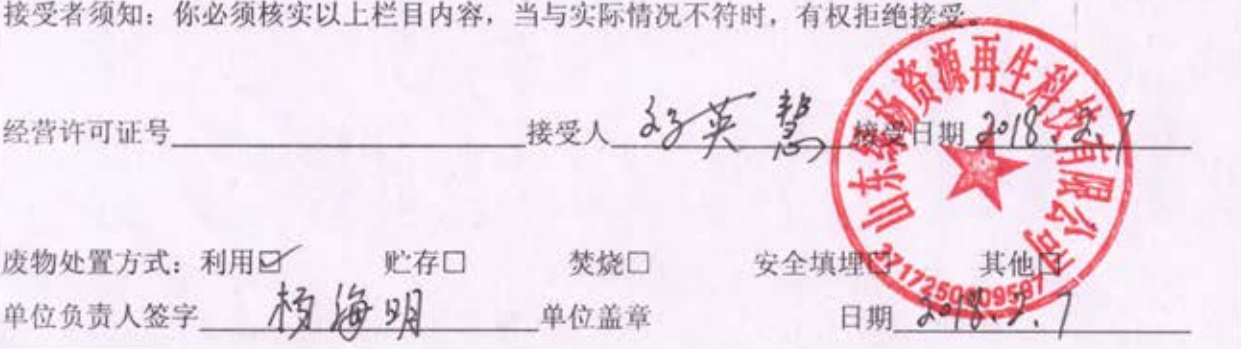 接受者须知：你必须核实以上栏目内容，当与实际情况不符时，有权拒绝接受。
经营许可证号 接受人 英慧 接受日期 2018.2.7
废物处置方式：利用☑ 贮存□ 焚烧□ 安全填埋□ 其他□
单位负责人签字 杨海明 单位盖章 日期 2018.2.7
山东 扬资源再生科技有限公司